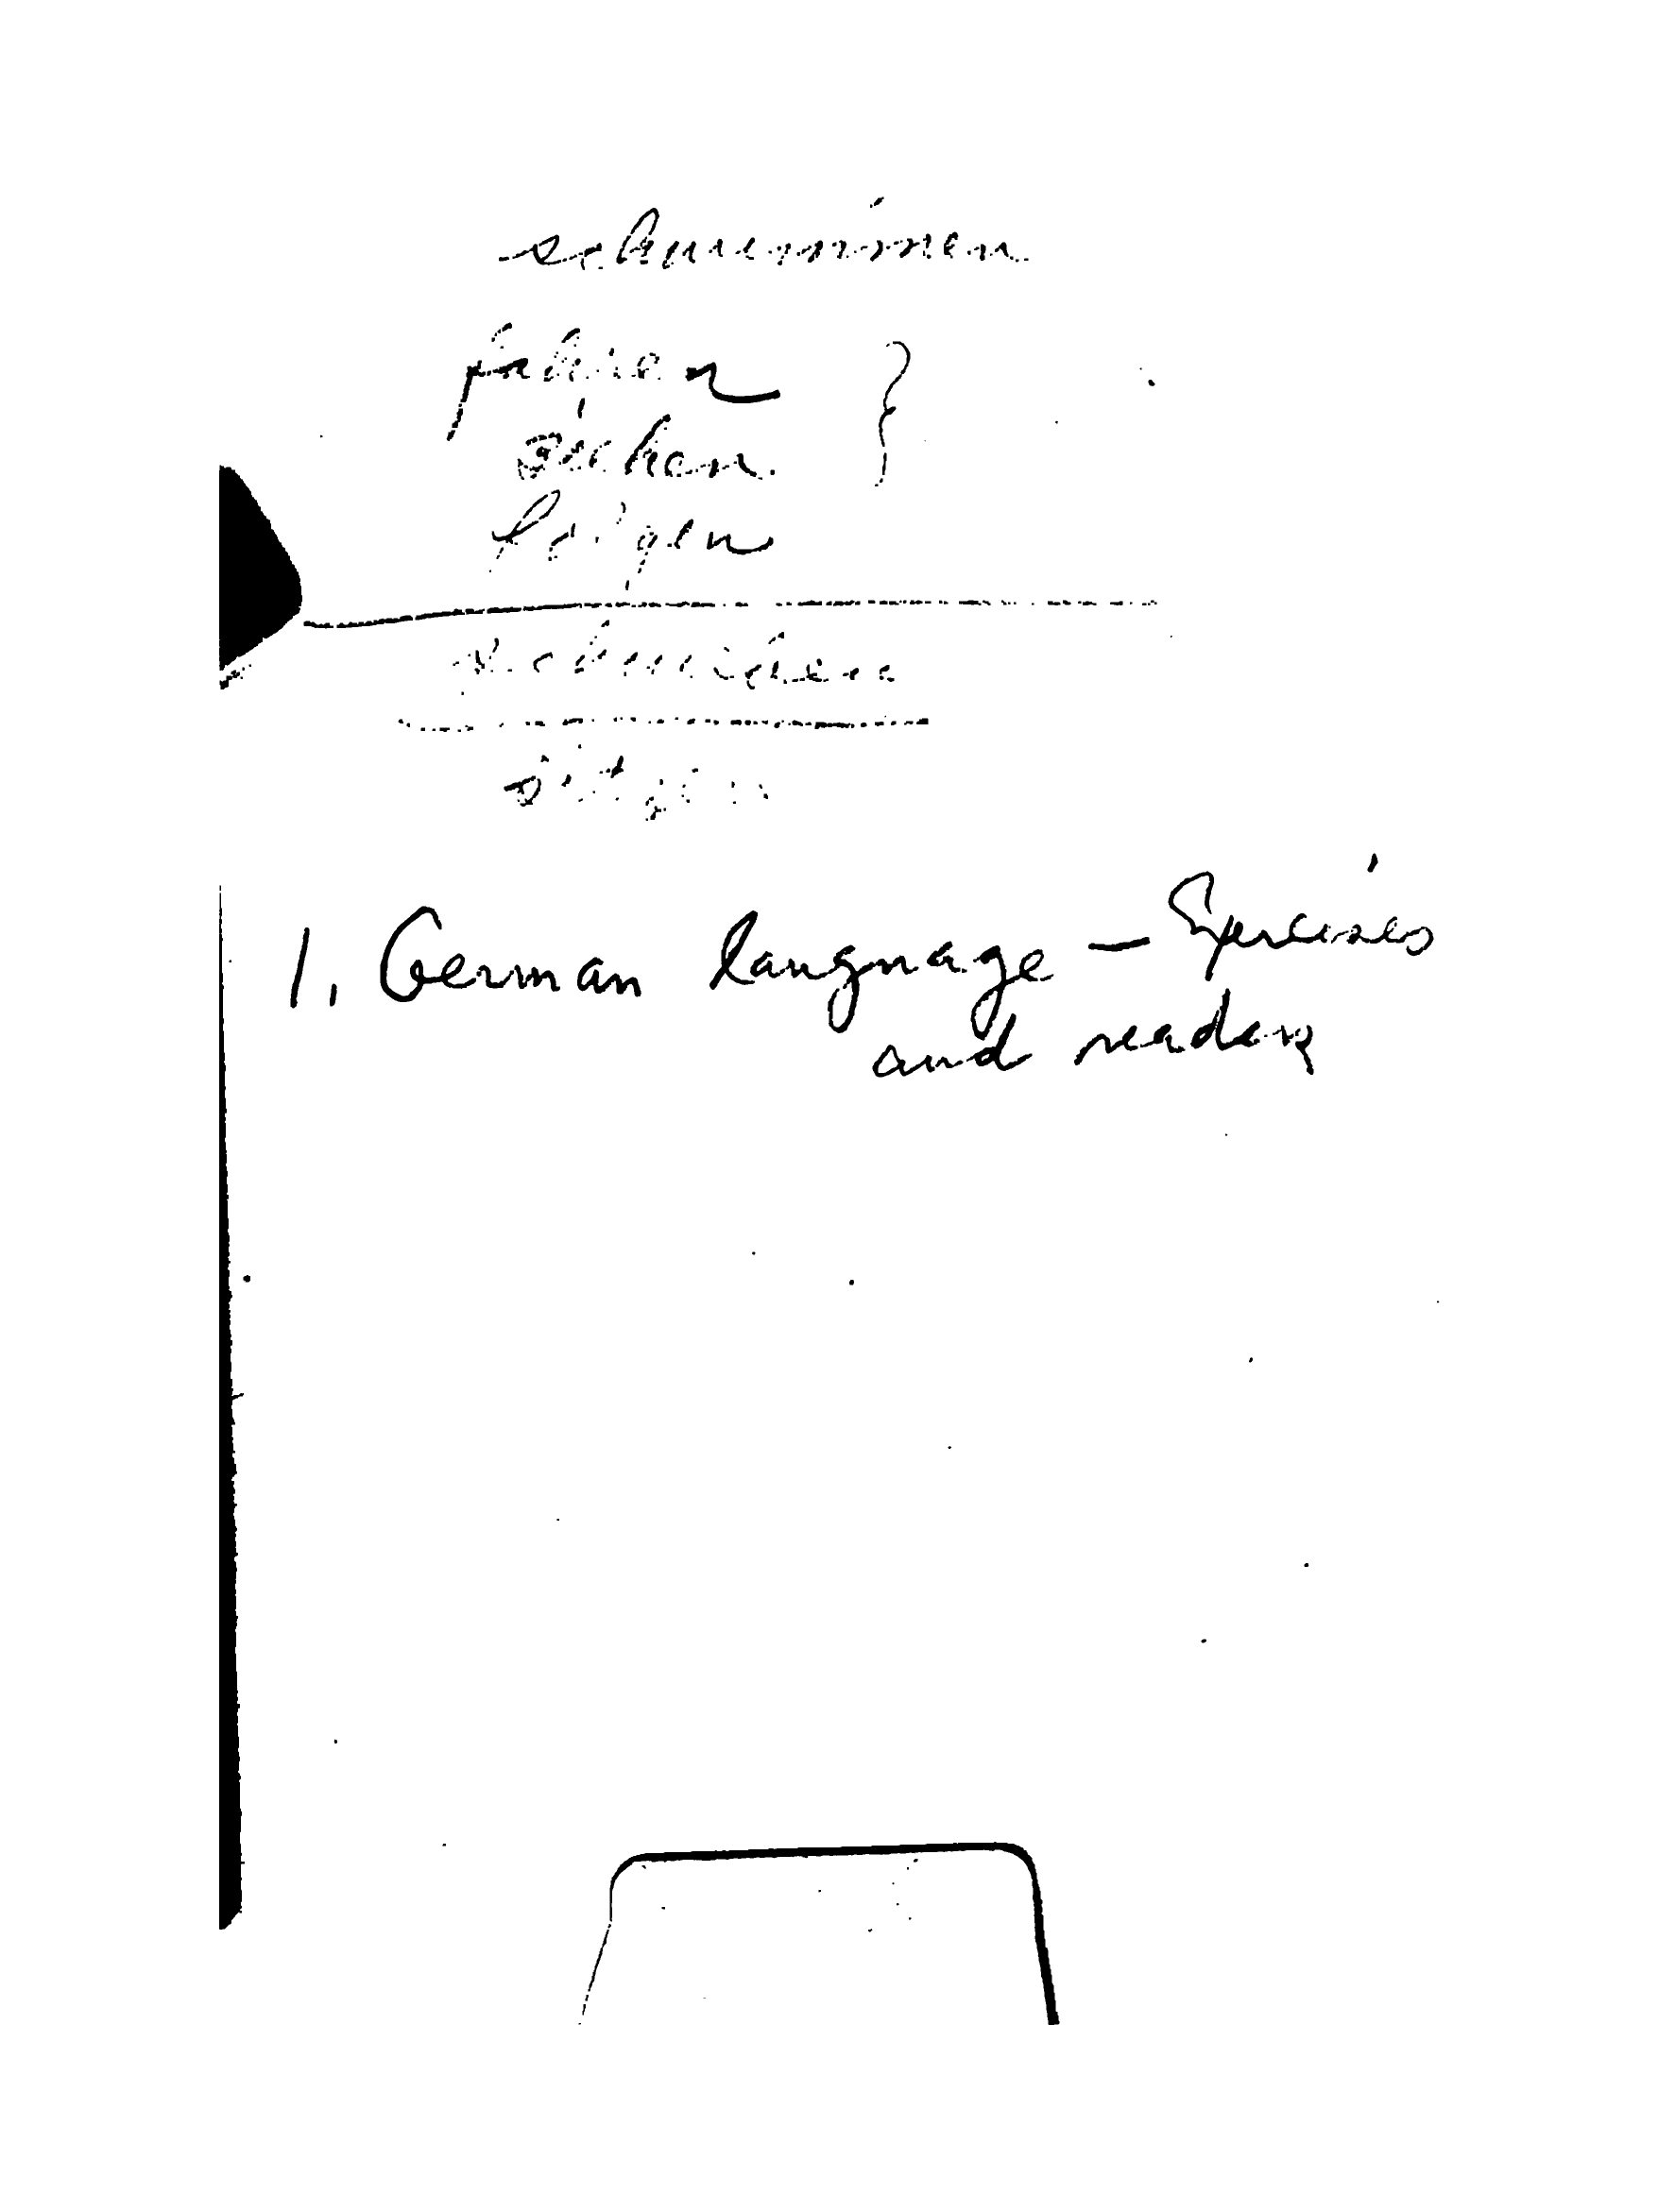 schwimmen
fahren
ziehen
folgen
sitzen
1. German language — Exercises
and readers